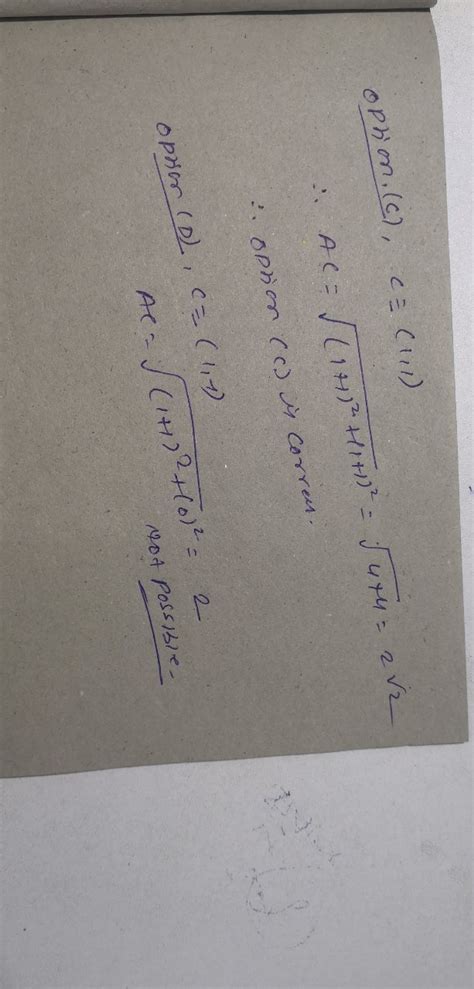 option (C), C ≡ (1,1)
∴ AC = √(1+1)²+(1+1)² = √4+4 = 2√2
∴ option (C) is correct.
option (D), C ≡ (1,-1)
AC = √(1+1)²+(0)² = 2
Not possible.